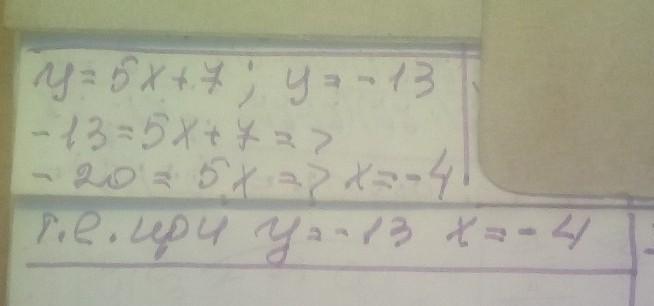 y=5x+7; y=-13
-13=5x+7=>
-20=5x=>x=-4
т.е.при y=-13 x=-4